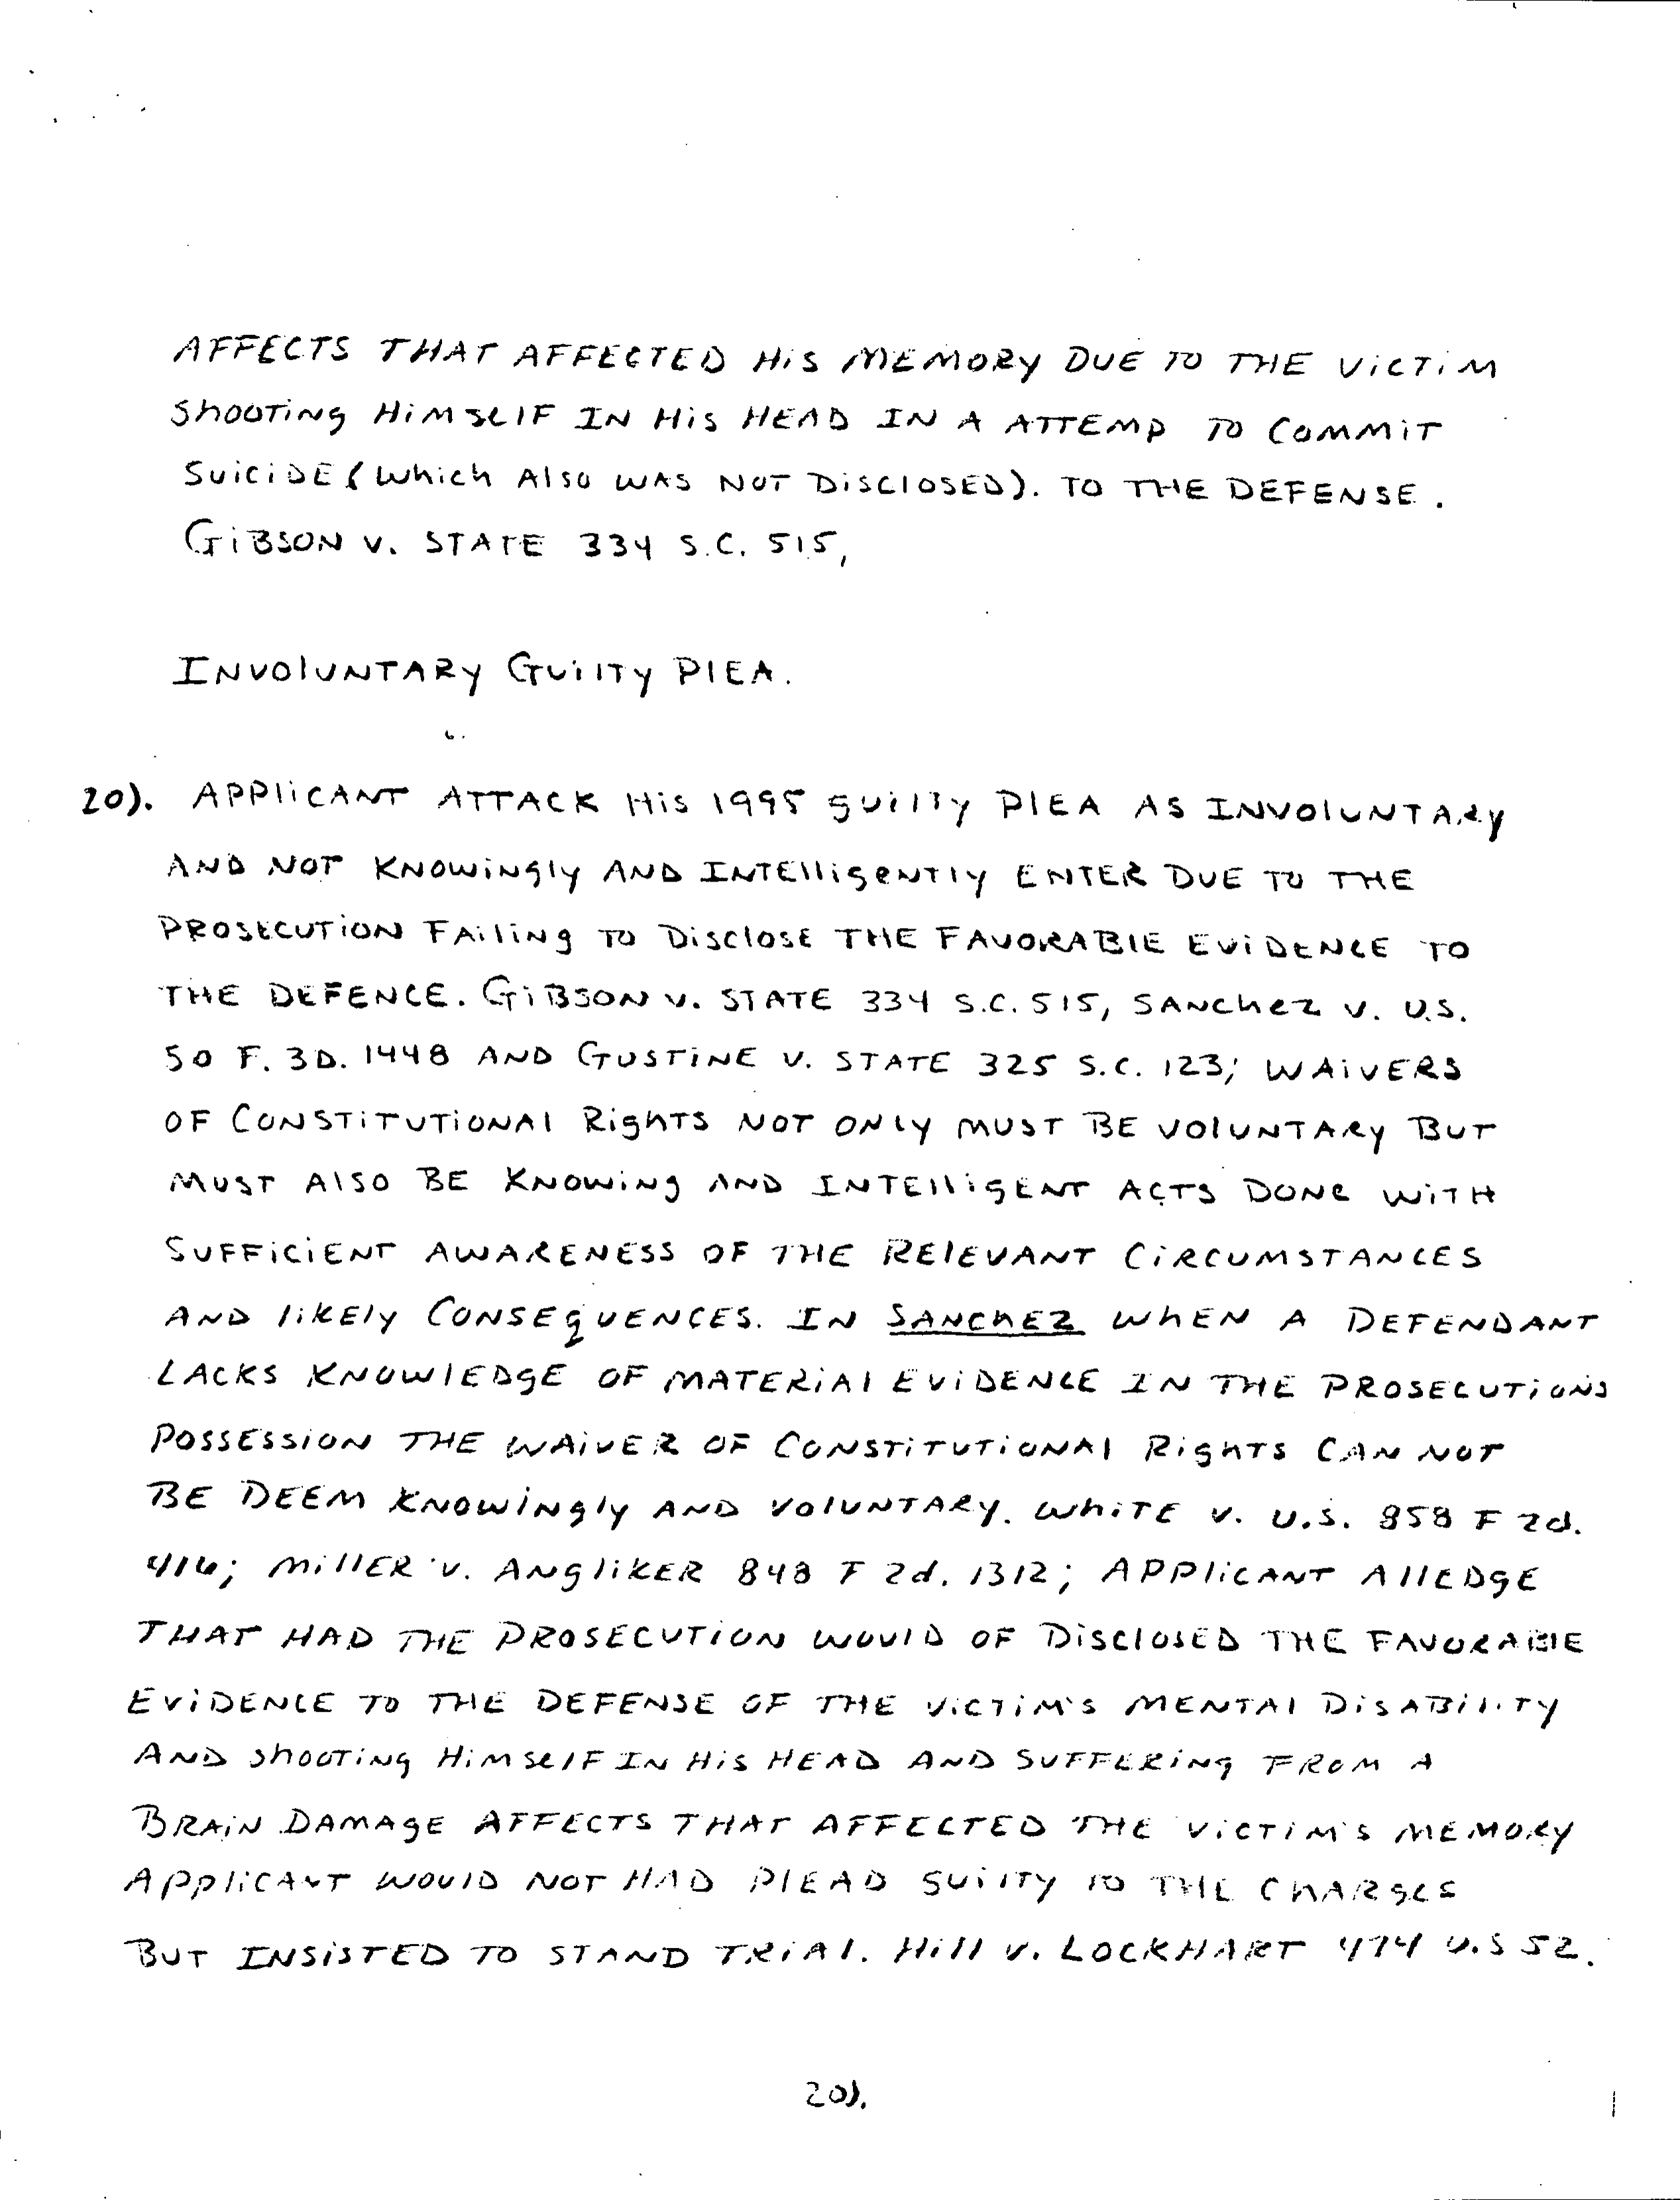 AFFECTS THAT AFFECTED HIS MEMORY DUE TO THE VICTIM
SHOOTING HIMSELF IN HIS HEAD IN A ATTEMP TO COMMIT
SUICIDE (WHICH ALSO WAS NOT DISCLOSED). TO THE DEFENSE.
GIBSON V. STATE 334 S.C. 515,
INVOLUNTARY GUILTY PLEA.
20). APPLICANT ATTACK HIS 1995 GUILTY PLEA AS INVOLUNTARY
AND NOT KNOWINGLY AND INTELLIGENTLY ENTER DUE TO THE
PROSECUTION FAILING TO DISCLOSE THE FAVORABLE EVIDENCE TO
THE DEFENCE. GIBSON V. STATE 334 S.C. 515, SANCHEZ V. U.S.
50 F. 3D. 1448 AND GUSTINE V. STATE 325 S.C. 123; WAIVERS
OF CONSTITUTIONAL RIGHTS NOT ONLY MUST BE VOLUNTARY BUT
MUST ALSO BE KNOWING AND INTELLIGENT ACTS DONE WITH
SUFFICIENT AWARENESS OF THE RELEVANT CIRCUMSTANCES
AND LIKELY CONSEQUENCES. IN SANCHEZ WHEN A DEFENDANT
LACKS KNOWLEDGE OF MATERIAL EVIDENCE IN THE PROSECUTIONS
POSSESSION THE WAIVER OF CONSTITUTIONAL RIGHTS CAN NOT
BE DEEM KNOWINGLY AND VOLUNTARY. WHITE V. U.S. 858 F 2d.
416; MILLER V. ANGLIKER 848 F 2d. 1312; APPLICANT ALLEDGE
THAT HAD THE PROSECUTION WOULD OF DISCLOSED THE FAVORABLE
EVIDENCE TO THE DEFENSE OF THE VICTIM'S MENTAL DISABILITY
AND SHOOTING HIMSELF IN HIS HEAD AND SUFFERING FROM A
BRAIN DAMAGE AFFECTS THAT AFFECTED THE VICTIM'S MEMORY
APPLICANT WOULD NOT HAD PLEAD GUILTY TO THE CHARGES
BUT INSISTED TO STAND TRIAL. HILL V. LOCKHART 474 U.S 52.
20).